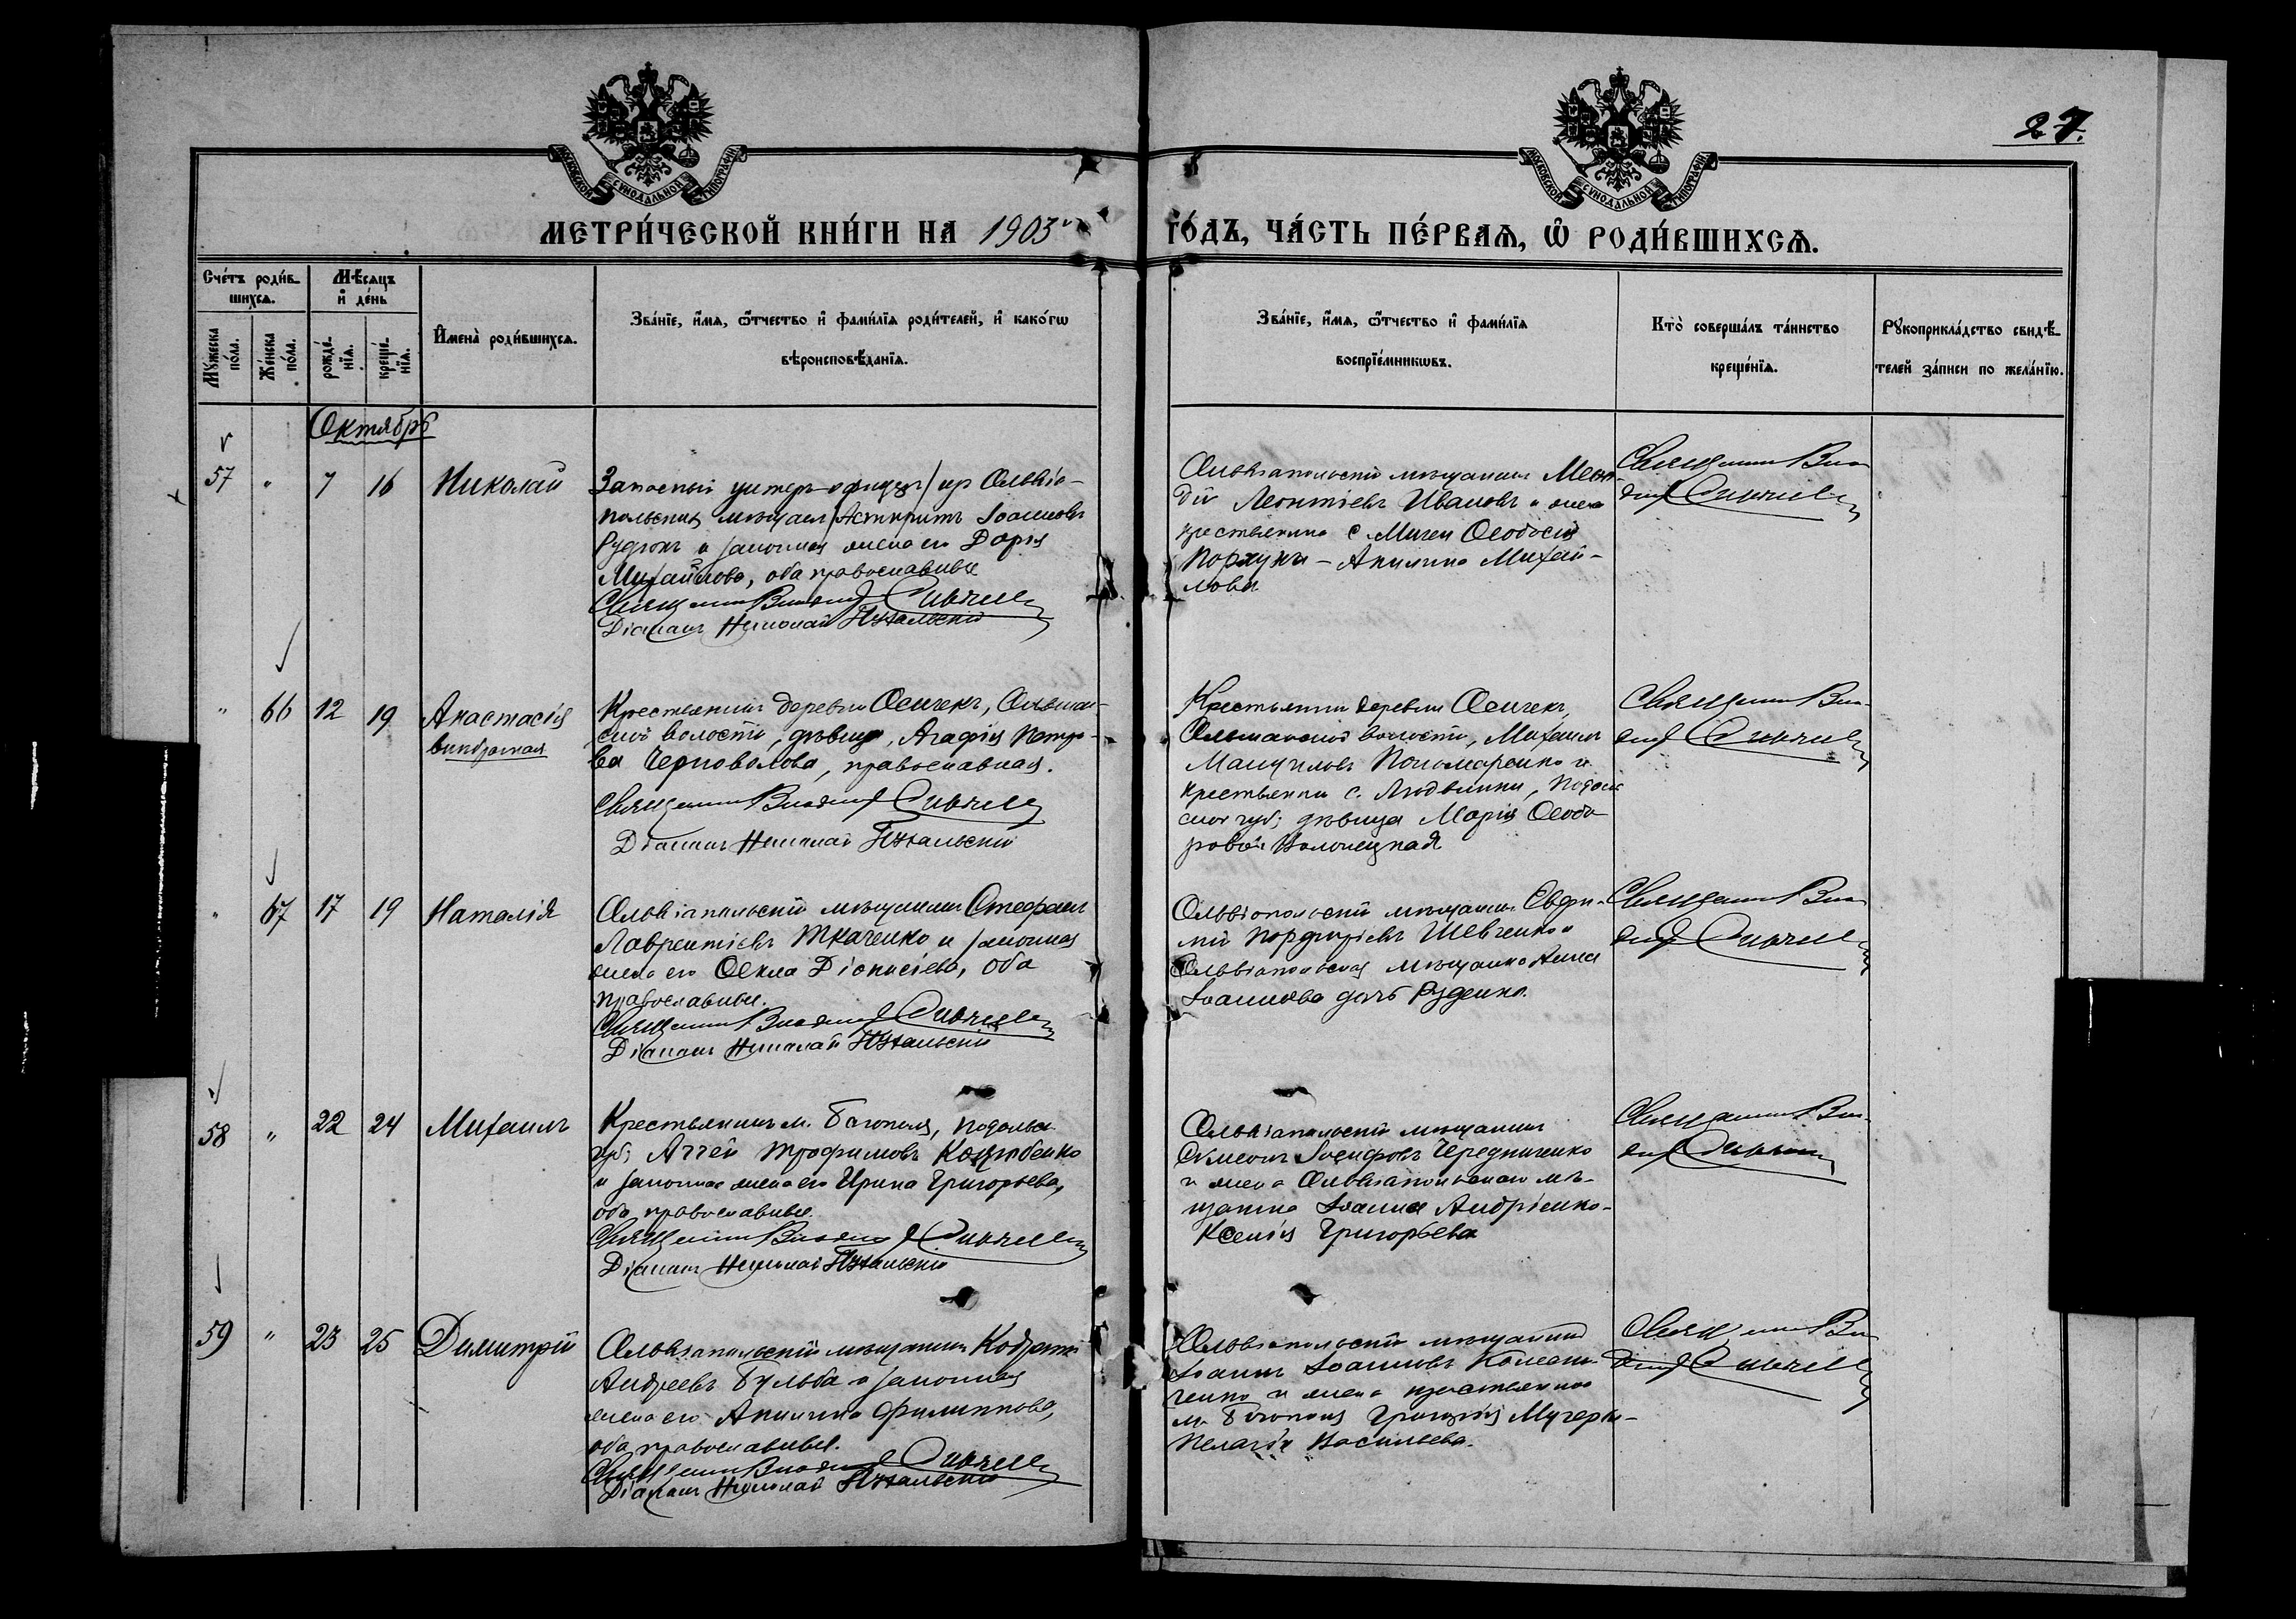 27.
МОСКОВСКОЙ СѴНОДАЛЬНОЙ ТИПОГРАФІИ
МОСКОВСКОЙ СѴНОДАЛЬНОЙ ТИПОГРАФІИ
МЕТРИ́ЧЕСКОЙ КНИ́ГИ НА 1903 го́дъ, ЧА́СТЬ ПЕ́РВАѦ, Ѽ РОДИ́ВШИХСѦ.
Сче́тъ роди́в-
шихсѧ.
Мꙋ́жеска по́ла.
Же́нска по́ла.
Мѣ́сѧцъ
и҆ де́нь
рожде́-
нїѧ.
креще́-
нїѧ.
И҆мена̀ роди́вшихсѧ.
Зва́нїе, и҆́мѧ, ѻ҆́тчество и҆ фами́лїѧ роди́телей, и҆ како́гѡ
вѣроисповѣ́данїѧ.
Зва́нїе, и҆́мѧ, ѻ҆́тчество и҆ фами́лїѧ
воспрїе́мникѡвъ.
Кто̀ соверша́лъ та́инство
креще́нїѧ.
Рꙋкоприкла́дство свидѣ́-
телей за́писи по жела́нїю.
Октябрь
57 " 7 16 Николай
Запасный унтеръ-офицеръ /изъ Ольвіо-
польскихъ мѣщанъ/ Іоанновъ
Рудюкъ и законная жена его Дарія
Михайлова, оба православные
Священникъ Владимиръ
Діаконъ Николай
Ольвіопольскій мѣщанинъ
Леонтіевъ Ивановъ и жена
крестьянина с. Мигеи Ѳеодосія
Акилина Михай-
лова
Священникъ Вла-
димиръ
" 66 12 19 Анастасія
внибрачная
Крестьянка деревни Осичекъ, Ольшан-
ской волости, дѣвица, Агафія Петро-
ва Черноволова, православная.
Священникъ Владимиръ
Діаконъ Николай
Крестьянинъ деревни Осичекъ,
Ольшанской волости, Михаилъ
Мануиловъ Пономаренко и
крестьянка с. Людвинки, Подоль-
ской губ; дѣвица Марія Ѳеодо-
рова
Священникъ Вла-
димиръ
" 67 17 19 Наталія
Ольвіопольскій мѣщанинъ Стефанъ
Лаврентіевъ Ткаченко и законная
жена его Ѳекла Діонисіева, оба
православные.
Священникъ Владимиръ
Діаконъ Николай
Ольвіопольскій мѣщанинъ Евфи-
мій Порфиріевъ Шевченко и
Ольвіопольская мѣщанка Анна
Іоаннова дочь Руденко.
Священникъ Вла-
димиръ
58 " 22 24 Михаилъ
Крестьянинъ м. Богополя, Подольск.
губ; Аггей Трофимовъ Коцюбенко
и законная жена его Ирина Григорьева,
оба православные.
Священникъ Владимиръ
Діаконъ Николай
Ольвіопольскій мѣщанинъ
Сѵмеонъ Іосифовъ Чередниченко
и жена Ольвіопольскаго мѣ-
щанина Іоанна Андріенко-
Ксенія Григорьева
Священникъ Вла-
димиръ
59 " 23 25 Димитрій
Ольвіопольскій мѣщанинъ Кодратъ
Андреевъ Бульба и законная
жена его Акилина Филиппова,
оба православные.
Священникъ Владимиръ
Діаконъ Николай
Ольвіопольскій мѣщанинъ
Іоаннъ Іоанновъ Колесни-
ченко и жена крестьянина
м. Богополя Григорія
Пелагія Васильева.
Священникъ Вла-
димиръ